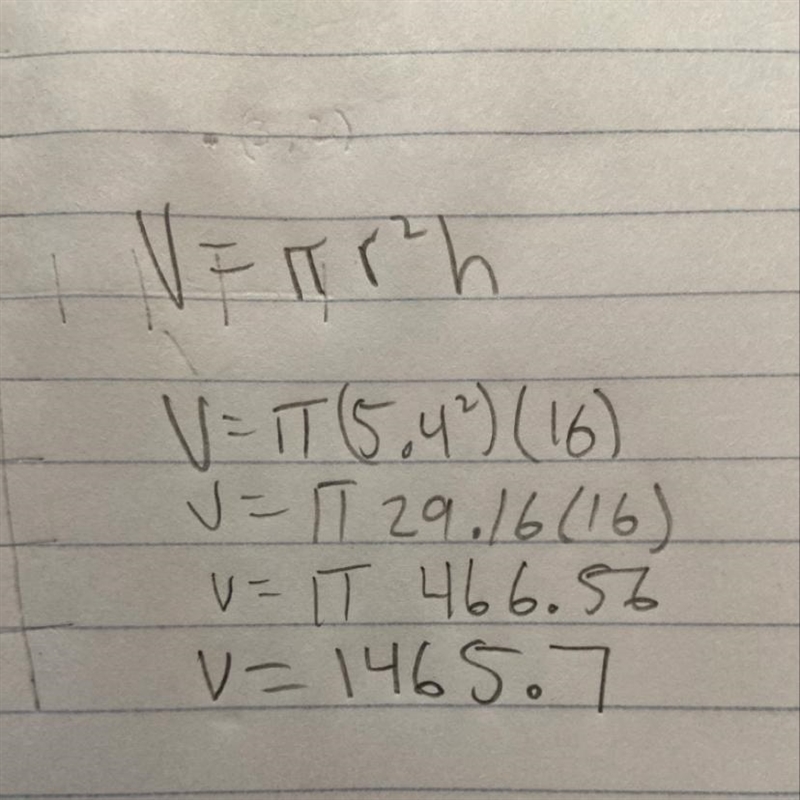 V = πr²h
V = π(5.4²)(16)
V = π 29.16(16)
V = π 466.56
V = 1465.7